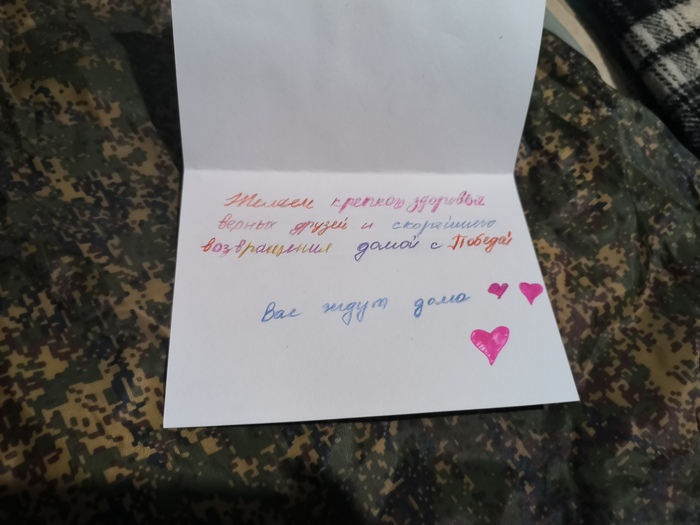 Желаем крепкого здоровья
верных друзей и скорейшего
возвращения домой с Победой
Вас ждут дома